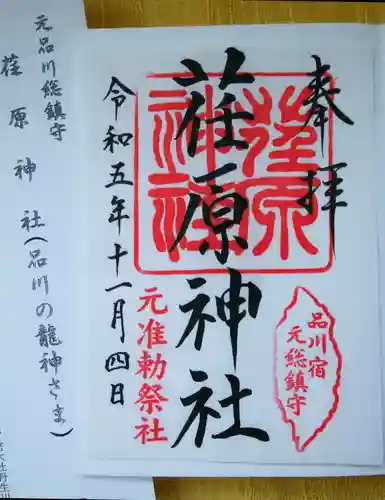 奉拝
荏原神社
荏原神社
令和五年十一月四日
元准勅祭社
品川宿
元総鎮守
元品川総鎮守
荏原神社(品川の龍神さま)